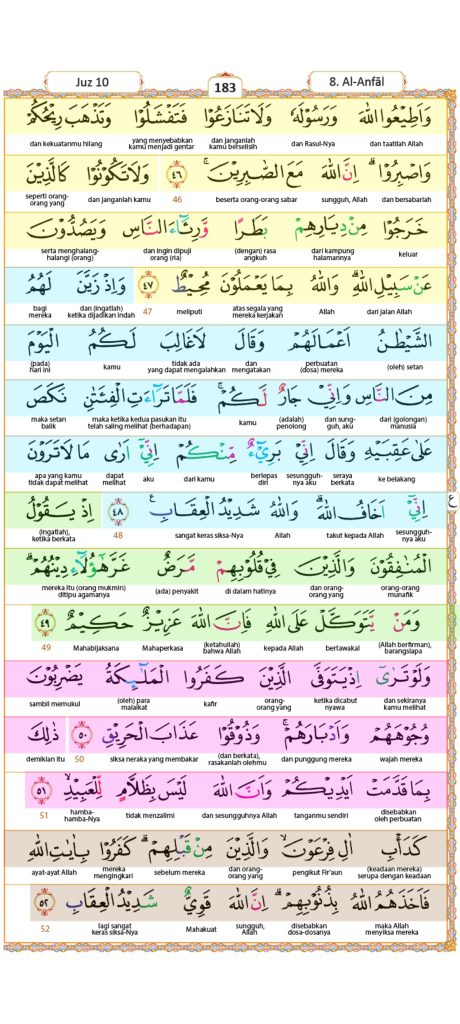 Juz 10
183
8. Al-Anfāl
وَاَطِيْعُوا اللّٰهَ وَرَسُوْلَهٗ وَلَا تَنَازَعُوْا فَتَفْشَلُوْا وَتَذْهَبَ رِيْحُكُمْ
dan taatilah Allah dan Rasul-Nya dan janganlah kamu berselisih yang menyebabkan kamu menjadi gentar dan kekuatanmu hilang
وَاصْبِرُوْاۗ اِنَّ اللّٰهَ مَعَ الصّٰبِرِيْنَۚ ٤٦ وَلَا تَكُوْنُوْا كَالَّذِيْنَ
dan bersabarlah sungguh, Allah beserta orang-orang sabar 46 dan janganlah kamu seperti orang-orang yang
خَرَجُوْا مِنْ دِيَارِهِمْ بَطَرًا وَّرِئَاۤءَ النَّاسِ وَيَصُدُّوْنَ
keluar dari kampung halamannya (dengan) rasa angkuh dan ingin dipuji orang (ria) serta menghalang-halangi (orang)
عَنْ سَبِيْلِ اللّٰهِۗ وَاللّٰهُ بِمَا يَعْمَلُوْنَ مُحِيْطٌ ٤٧ وَاِذْ زَيَّنَ لَهُمُ
dari jalan Allah Allah atas segala yang mereka kerjakan meliputi 47 dan (ingatlah) ketika dijadikan indah bagi mereka
الشَّيْطٰنُ اَعْمَالَهُمْ وَقَالَ لَا غَالِبَ لَكُمُ الْيَوْمَ
(oleh) setan perbuatan (dosa) mereka dan mengatakan tidak ada yang dapat mengalahkan kamu (pada) hari ini
مِنَ النَّاسِ وَاِنِّيْ جَارٌ لَّكُمْۚ فَلَمَّا تَرَاۤءَتِ الْفِئَتٰنِ نَكَصَ
dari (golongan) manusia dan sungguh, aku (adalah) penolong kamu maka ketika kedua pasukan itu telah saling melihat (berhadapan) maka setan balik
عَلٰى عَقِبَيْهِ وَقَالَ اِنِّيْ بَرِيْۤءٌ مِّنْكُمْ اِنِّيْٓ اَرٰى مَا لَا تَرَوْنَ
ke belakang seraya berkata sesungguhnya aku berlepas diri dari kamu aku dapat melihat apa yang kamu tidak dapat melihat
اِنِّيْٓ اَخَافُ اللّٰهَۗ وَاللّٰهُ شَدِيْدُ الْعِقَابِ ٤٨ اِذْ يَقُوْلُ
sesungguhnya aku takut kepada Allah Allah sangat keras siksa-Nya 48 (ingatlah), ketika berkata
الْمُنٰفِقُوْنَ وَالَّذِيْنَ فِيْ قُلُوْبِهِمْ مَّرَضٌ غَرَّ هٰٓؤُلَاۤءِ دِيْنُهُمْۗ
orang-orang munafik dan orang-orang yang di dalam hatinya (ada) penyakit mereka itu (orang mukmin) ditipu agamanya
وَمَنْ يَّتَوَكَّلْ عَلَى اللّٰهِ فَاِنَّ اللّٰهَ عَزِيْزٌ حَكِيْمٌ ٤٩
(Allah berfirman), barangsiapa bertawakal kepada Allah (ketahuilah) bahwa Allah Mahaperkasa Mahabijaksana 49
وَلَوْ تَرٰٓى اِذْ يَتَوَفَّى الَّذِيْنَ كَفَرُوا الْمَلٰۤىِٕكَةُ يَضْرِبُوْنَ
dan sekiranya kamu melihat ketika dicabut nyawa orang-orang yang kafir (oleh) para malaikat sambil memukul
وُجُوْهَهُمْ وَاَدْبَارَهُمْۚ وَذُوْقُوْا عَذَابَ الْحَرِيْقِ ٥٠ ذٰلِكَ
wajah mereka dan punggung mereka (dan berkata), rasakanlah olehmu siksa neraka yang membakar 50 demikian itu
بِمَا قَدَّمَتْ اَيْدِيْكُمْ وَاَنَّ اللّٰهَ لَيْسَ بِظَلَّامٍ لِّلْعَبِيْدِۙ ٥١
disebabkan oleh perbuatan tanganmu sendiri dan sesungguhnya Allah tidak menzalimi hamba-hamba-Nya 51
كَدَأْبِ اٰلِ فِرْعَوْنَۙ وَالَّذِيْنَ مِنْ قَبْلِهِمْۗ كَفَرُوْا بِاٰيٰتِ اللّٰهِ
(keadaan mereka) serupa dengan keadaan pengikut Fir'aun dan orang-orang yang sebelum mereka mereka mengingkari ayat-ayat Allah
فَاَخَذَهُمُ اللّٰهُ بِذُنُوْبِهِمْۗ اِنَّ اللّٰهَ قَوِيٌّ شَدِيْدُ الْعِقَابِ ٥٢
maka Allah menyiksa mereka disebabkan dosa-dosanya sungguh, Allah Mahakuat lagi sangat keras siksa-Nya 52
ع